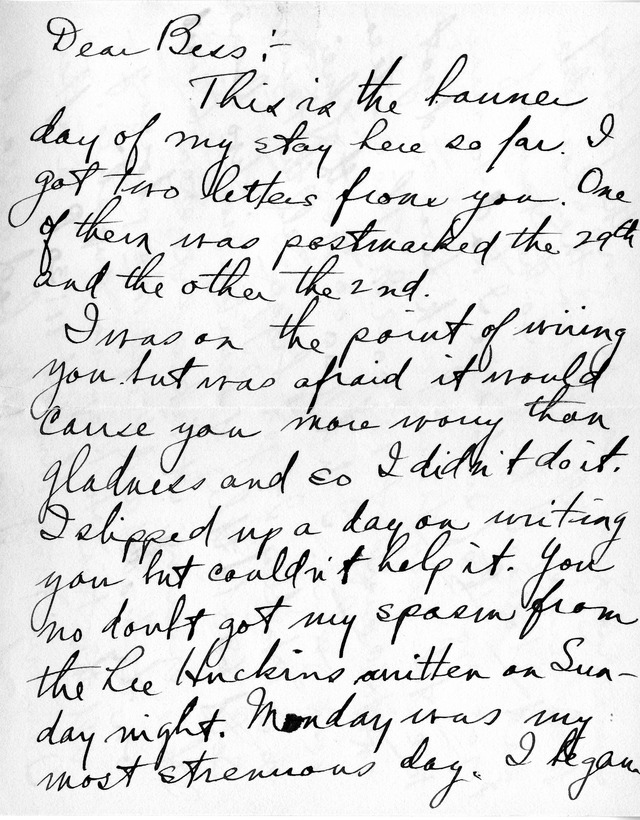 Dear Bess :-
This is the banner
day of my stay here so far. I
got two letters from you. One
of them was postmarked the 29th
and the other the 2nd.
I was on the point of wiring
you but was afraid it would
cause you more worry than
gladness and so I didn't do it.
I slipped up a day on writing
you but couldn't help it. You
no doubt got my spasm from
the Lee Huckins written on Sun-
day night. Monday was my
most strenuous day. I began